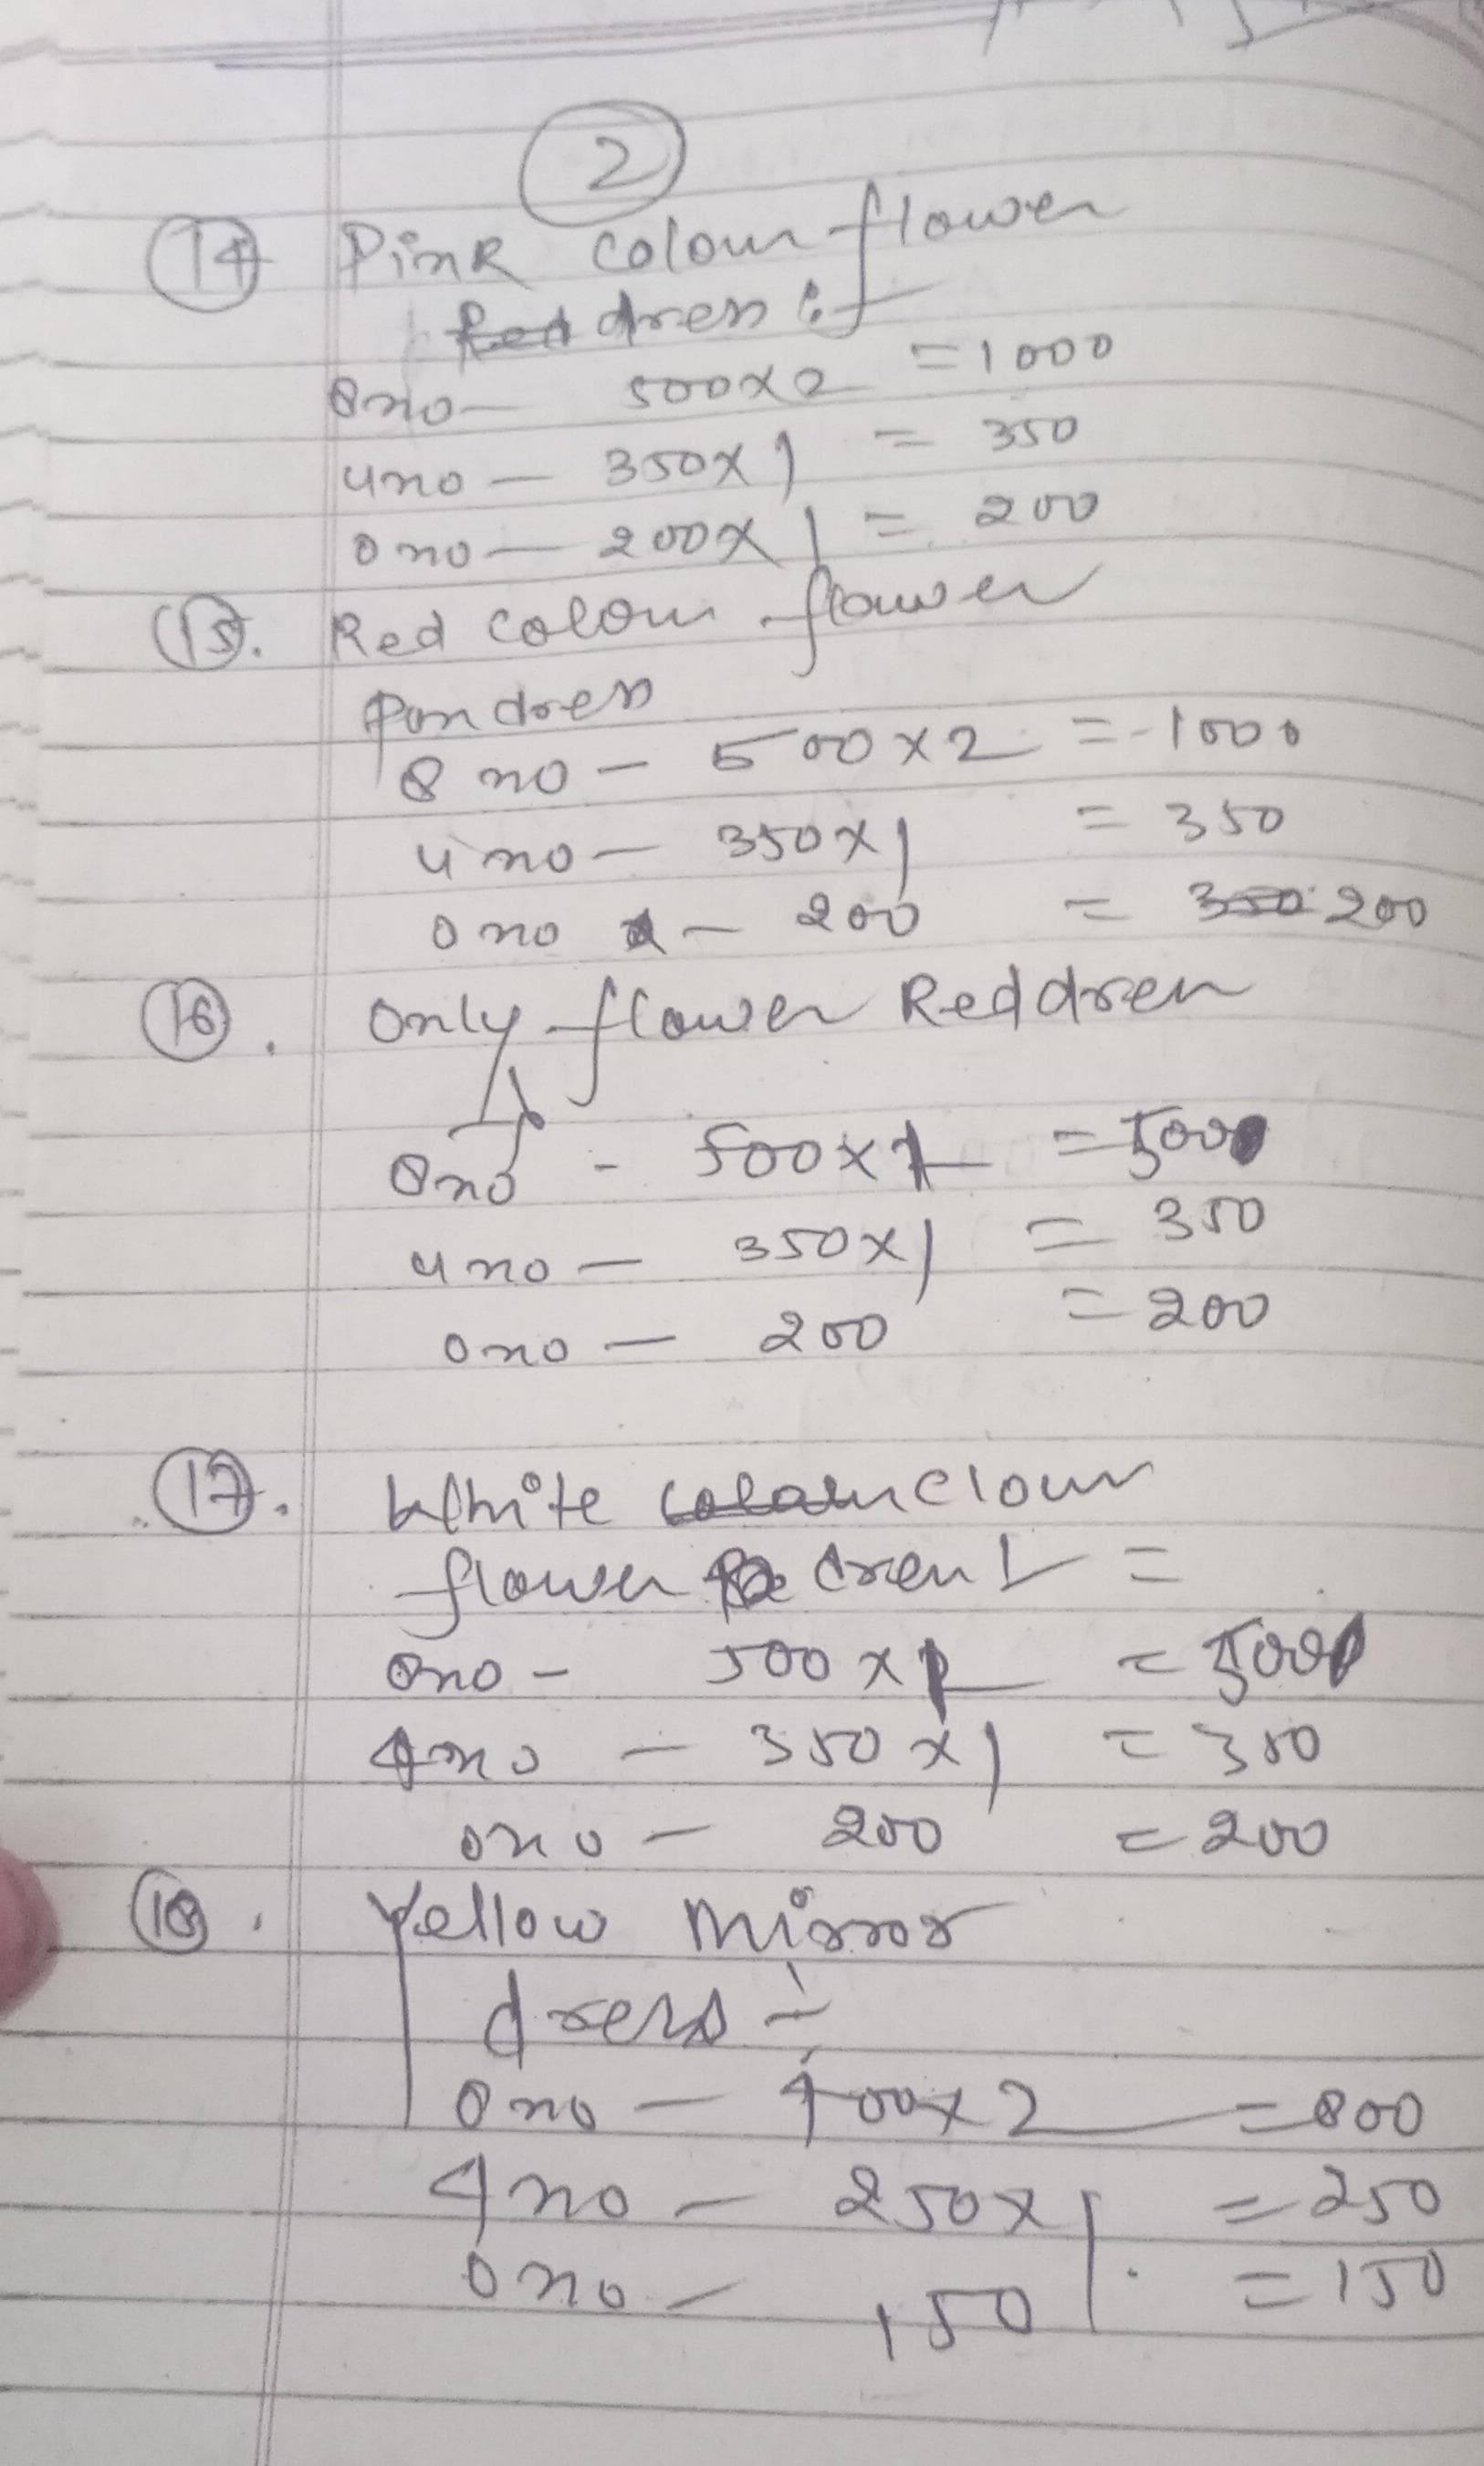 2
14 Pink colour flower
dress :-
8no - 500x2 = 1000
4no - 350x1 = 350
0no - 200x1 = 200
15. Red colour flower
Pon dress
8 no - 500x2 = 1000
4 no - 350x1 = 350
0 no - 200 = 200
16. only flower Red dress
8no - 500x1 = 500
4no - 350x1 = 350
0no - 200 = 200
17. White clour
flower dress :- =
8no - 500x1 = 500
4no - 350x1 = 350
0no - 200 = 200
18. Yellow mirror
dress :-
8no - 400x2 = 800
4no - 250x1 = 250
0no - 150 = 150